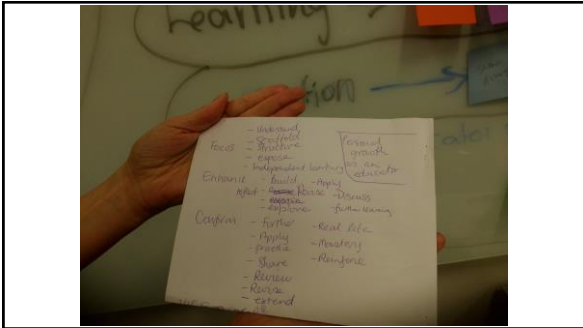 Learning
tion
- Understand
- Scaffold
Focus - Structure
- expose
- Independent learning
Personal
growth
as an
educator
Enhance - Build - Apply
reflect - Discuss
- explore - further learning
Confirm - Further - Real life
- Apply - Mastery
- practice - Reinforce
- Share
- Review
- Revise
- extend